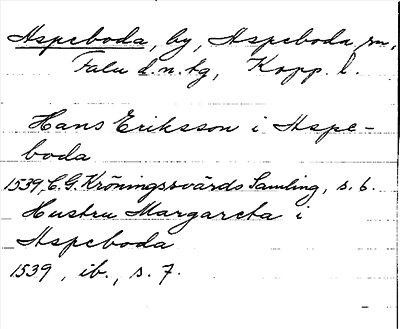 Aspeboda, by, Aspeboda sn,
Falu d.n. tg, Kopp. l.
Hans Eriksson i Aspe-
boda
1539, C.G. Kröningssvärds Samling, s. 6.
Hustru Margareta i
Aspeboda
1539, ib., s. 7.